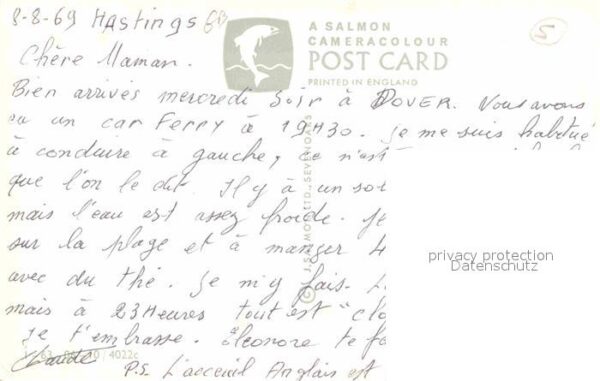 8-8-69 HASTINGS GB
A SALMON
CAMERACOLOUR
POST CARD
PRINTED IN ENGLAND
5
Chère Maman.
Bien arrivés mercredi soir à DOVER. Nous avons
eu un car Ferry à 19H30. Je me suis habitué
à conduire à gauche, ce n'est
que l'on le dit. Il y à un sol
mais l'eau est assez froide. Je
sur la plage et à manger
avec du thé. Je m'y fais.
mais à 23 Heures tout est "clo
Je t'embrasse. Eleonore te fa
Claude
P.S L'acceuil Anglais est
© J. SALMON LTD., SEVENOAKS
4022c
privacy protection
Datenschutz